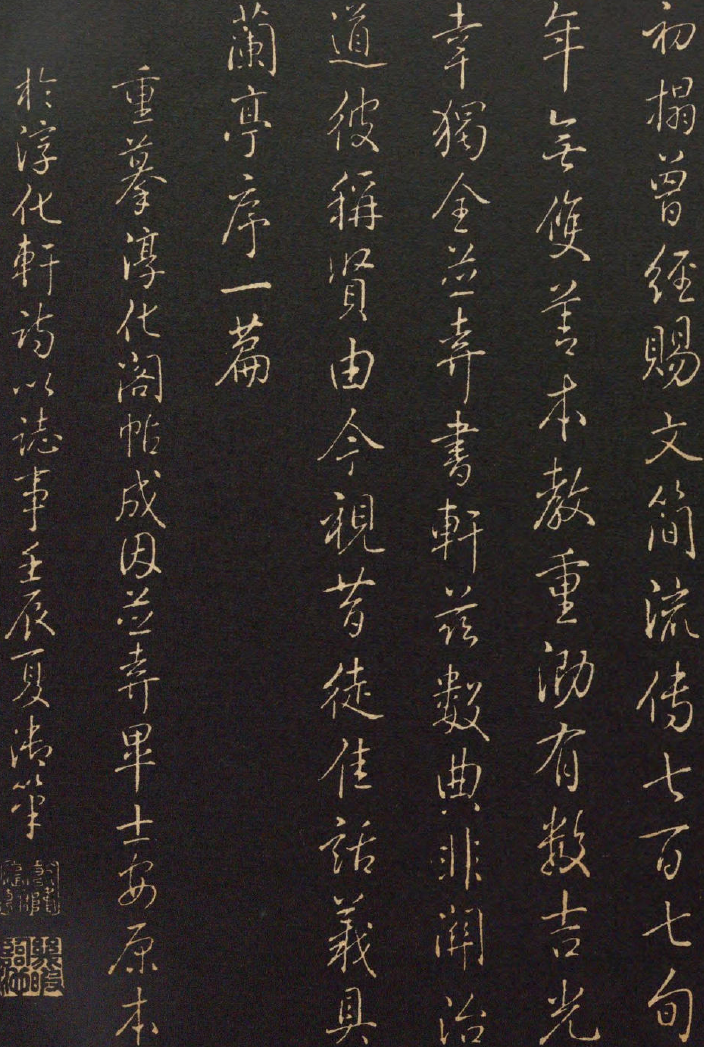 初搨曾經賜文簡流傳七百七旬
年無雙善本教重泐有數吉光
幸獨全並弆書軒茲數典非關治
道彼稱賢由今視昔徒佳話義具
蘭亭序一篇
重摹淳化閣帖成因並弆畢士安原本
於淳化軒詩以誌事壬辰夏御筆